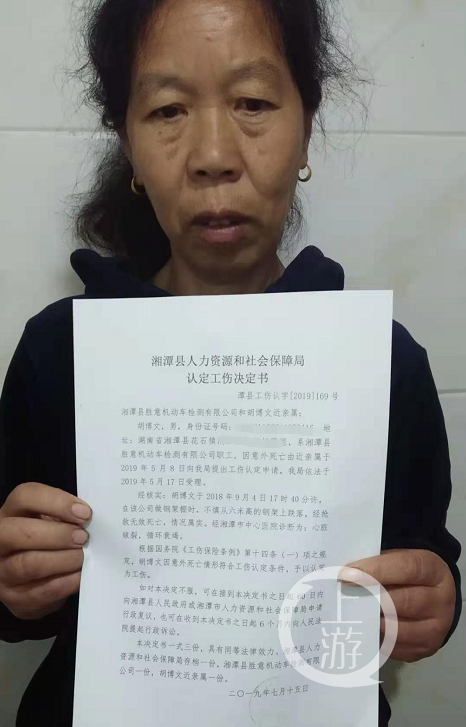 湘潭县人力资源和社会保障局
认定工伤决定书
潭县工伤认字[2019]169号
湘潭县胜意机动车检测有限公司和胡博文近亲属:
胡博文，男，身份证号码: 地
址：湖南省湘潭县花石镇 系湘潭县
胜意机动车检测有限公司职工，因意外死亡由近亲属于
2019年5月8日向我局提出工伤认定申请，我局依法于
2019年5月17日受理。
经核实：胡博文于2018年9月4日17时40分许，
在该公司做钢架棚时，不慎从六米高的钢架上跌落，经抢
救无效死亡，情况属实。经湘潭市中心医院诊断为：心脏
破裂，循环衰竭。
根据国务院《工伤保险条例》第十四条（一）项之规
定，胡博文因意外死亡情形符合工伤认定条件，予以认定
为工伤。
如对本决定不服，可在接到本决定书之日起60日内
向湘潭县人民政府或湘潭市人力资源和社会保障局申请
行政复议，也可在收到本决定书之日起6个月内向人民法
院提起行政诉讼。
本决定书一式三份，具有同等法律效力，湘潭县人力
资源和社会保障局存档一份，湘潭县胜意机动车检测有限
公司一份，胡博文近亲属一份。
二〇一九年七月十五日
上游